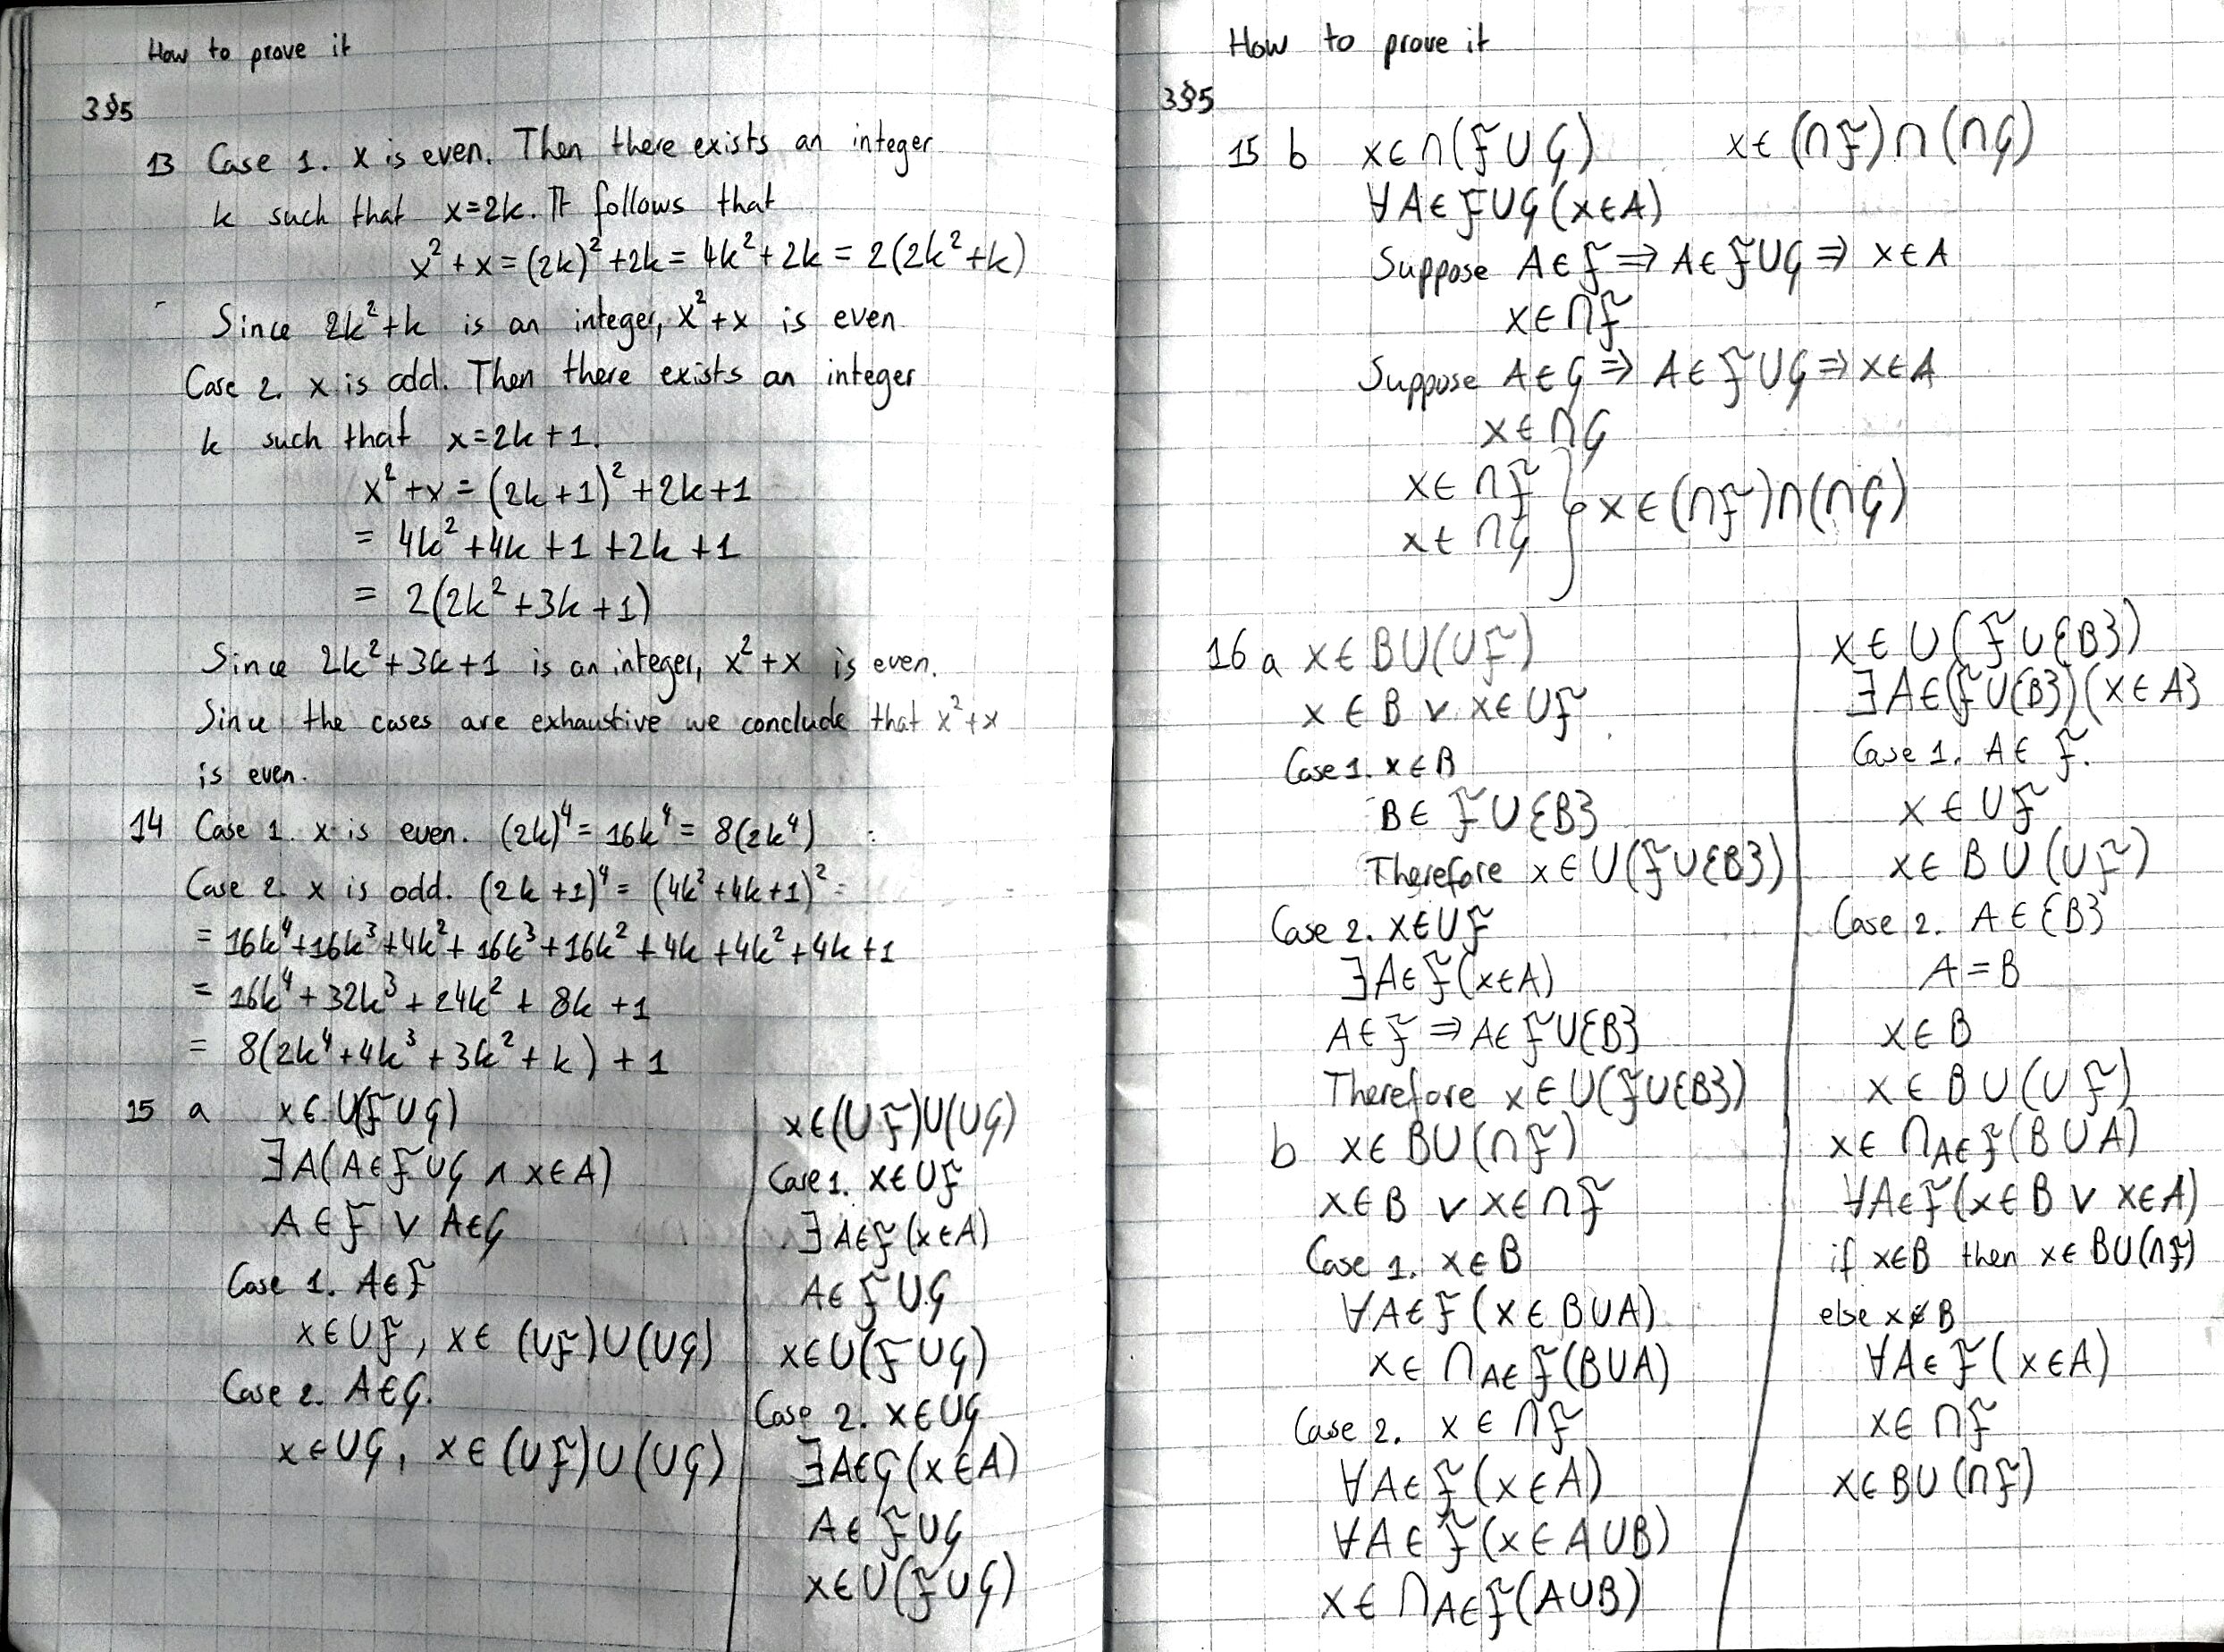 How to prove it
3§5
13 Case 1. x is even. Then there exists an integer
k such that x=2k. It follows that
x² + x = (2k)² + 2k = 4k² + 2k = 2(2k² + k)
Since 2k²+k is an integer, x²+x is even
Case 2. x is odd. Then there exists an integer
k such that x=2k+1.
x² + x = (2k+1)² + 2k+1
= 4k² + 4k + 1 + 2k + 1
= 2(2k² + 3k + 1)
Since 2k²+3k+1 is an integer, x²+x is even.
Since the cases are exhaustive we conclude that x²+x
is even.
14 Case 1. x is even. (2k)⁴ = 16k⁴ = 8(2k⁴)
Case 2. x is odd. (2k+1)⁴ = (4k²+4k+1)² =
= 16k⁴+16k³+4k²+16k³+16k²+4k+4k²+4k+1
= 16k⁴ + 32k³ + 24k² + 8k + 1
= 8(2k⁴+4k³+3k²+k) + 1
15 a x∈∪(ℱ∪𝒢)
∃A(A∈ℱ∪𝒢 ∧ x∈A)
A∈ℱ ∨ A∈𝒢
Case 1. A∈ℱ
x∈∪ℱ, x∈(∪ℱ)∪(∪𝒢)
Case 2. A∈𝒢.
x∈∪𝒢, x∈(∪ℱ)∪(∪𝒢)
x∈(∪ℱ)∪(∪𝒢)
Case 1. x∈∪ℱ
∃A∈ℱ(x∈A)
A∈ℱ∪𝒢
x∈∪(ℱ∪𝒢)
Case 2. x∈∪𝒢
∃A∈𝒢(x∈A)
A∈ℱ∪𝒢
x∈∪(ℱ∪𝒢)
How to prove it
3§5
15 b x∈∩(ℱ∪𝒢) x∈(∩ℱ)∩(∩𝒢)
∀A∈ℱ∪𝒢(x∈A)
Suppose A∈ℱ ⇒ A∈ℱ∪𝒢 ⇒ x∈A
x∈∩ℱ
Suppose A∈𝒢 ⇒ A∈ℱ∪𝒢 ⇒ x∈A
x∈∩𝒢
x∈∩ℱ
x∈∩𝒢 } x∈(∩ℱ)∩(∩𝒢)
16 a x∈B∪(∪ℱ)
x∈B ∨ x∈∪ℱ
Case 1. x∈B
B∈ℱ∪{B}
Therefore x∈∪(ℱ∪{B})
Case 2. x∈∪ℱ
∃A∈ℱ(x∈A)
A∈ℱ ⇒ A∈ℱ∪{B}
Therefore x∈∪(ℱ∪{B})
x∈∪(ℱ∪{B})
∃A∈(ℱ∪{B})(x∈A}
Case 1. A∈ℱ.
x∈∪ℱ
x∈B∪(∪ℱ)
Case 2. A∈{B}
A=B
x∈B
x∈B∪(∪ℱ)
b x∈B∪(∩ℱ)
x∈B ∨ x∈∩ℱ
Case 1. x∈B
∀A∈ℱ(x∈B∪A)
x∈∩A∈ℱ(B∪A)
Case 2. x∈∩ℱ
∀A∈ℱ(x∈A)
∀A∈ℱ(x∈A∪B)
x∈∩A∈ℱ(A∪B)
x∈∩A∈ℱ(B∪A)
∀A∈ℱ(x∈B ∨ x∈A)
if x∈B then x∈B∪(∩ℱ)
else x∉B
∀A∈ℱ(x∈A)
x∈∩ℱ
x∈B∪(∩ℱ)